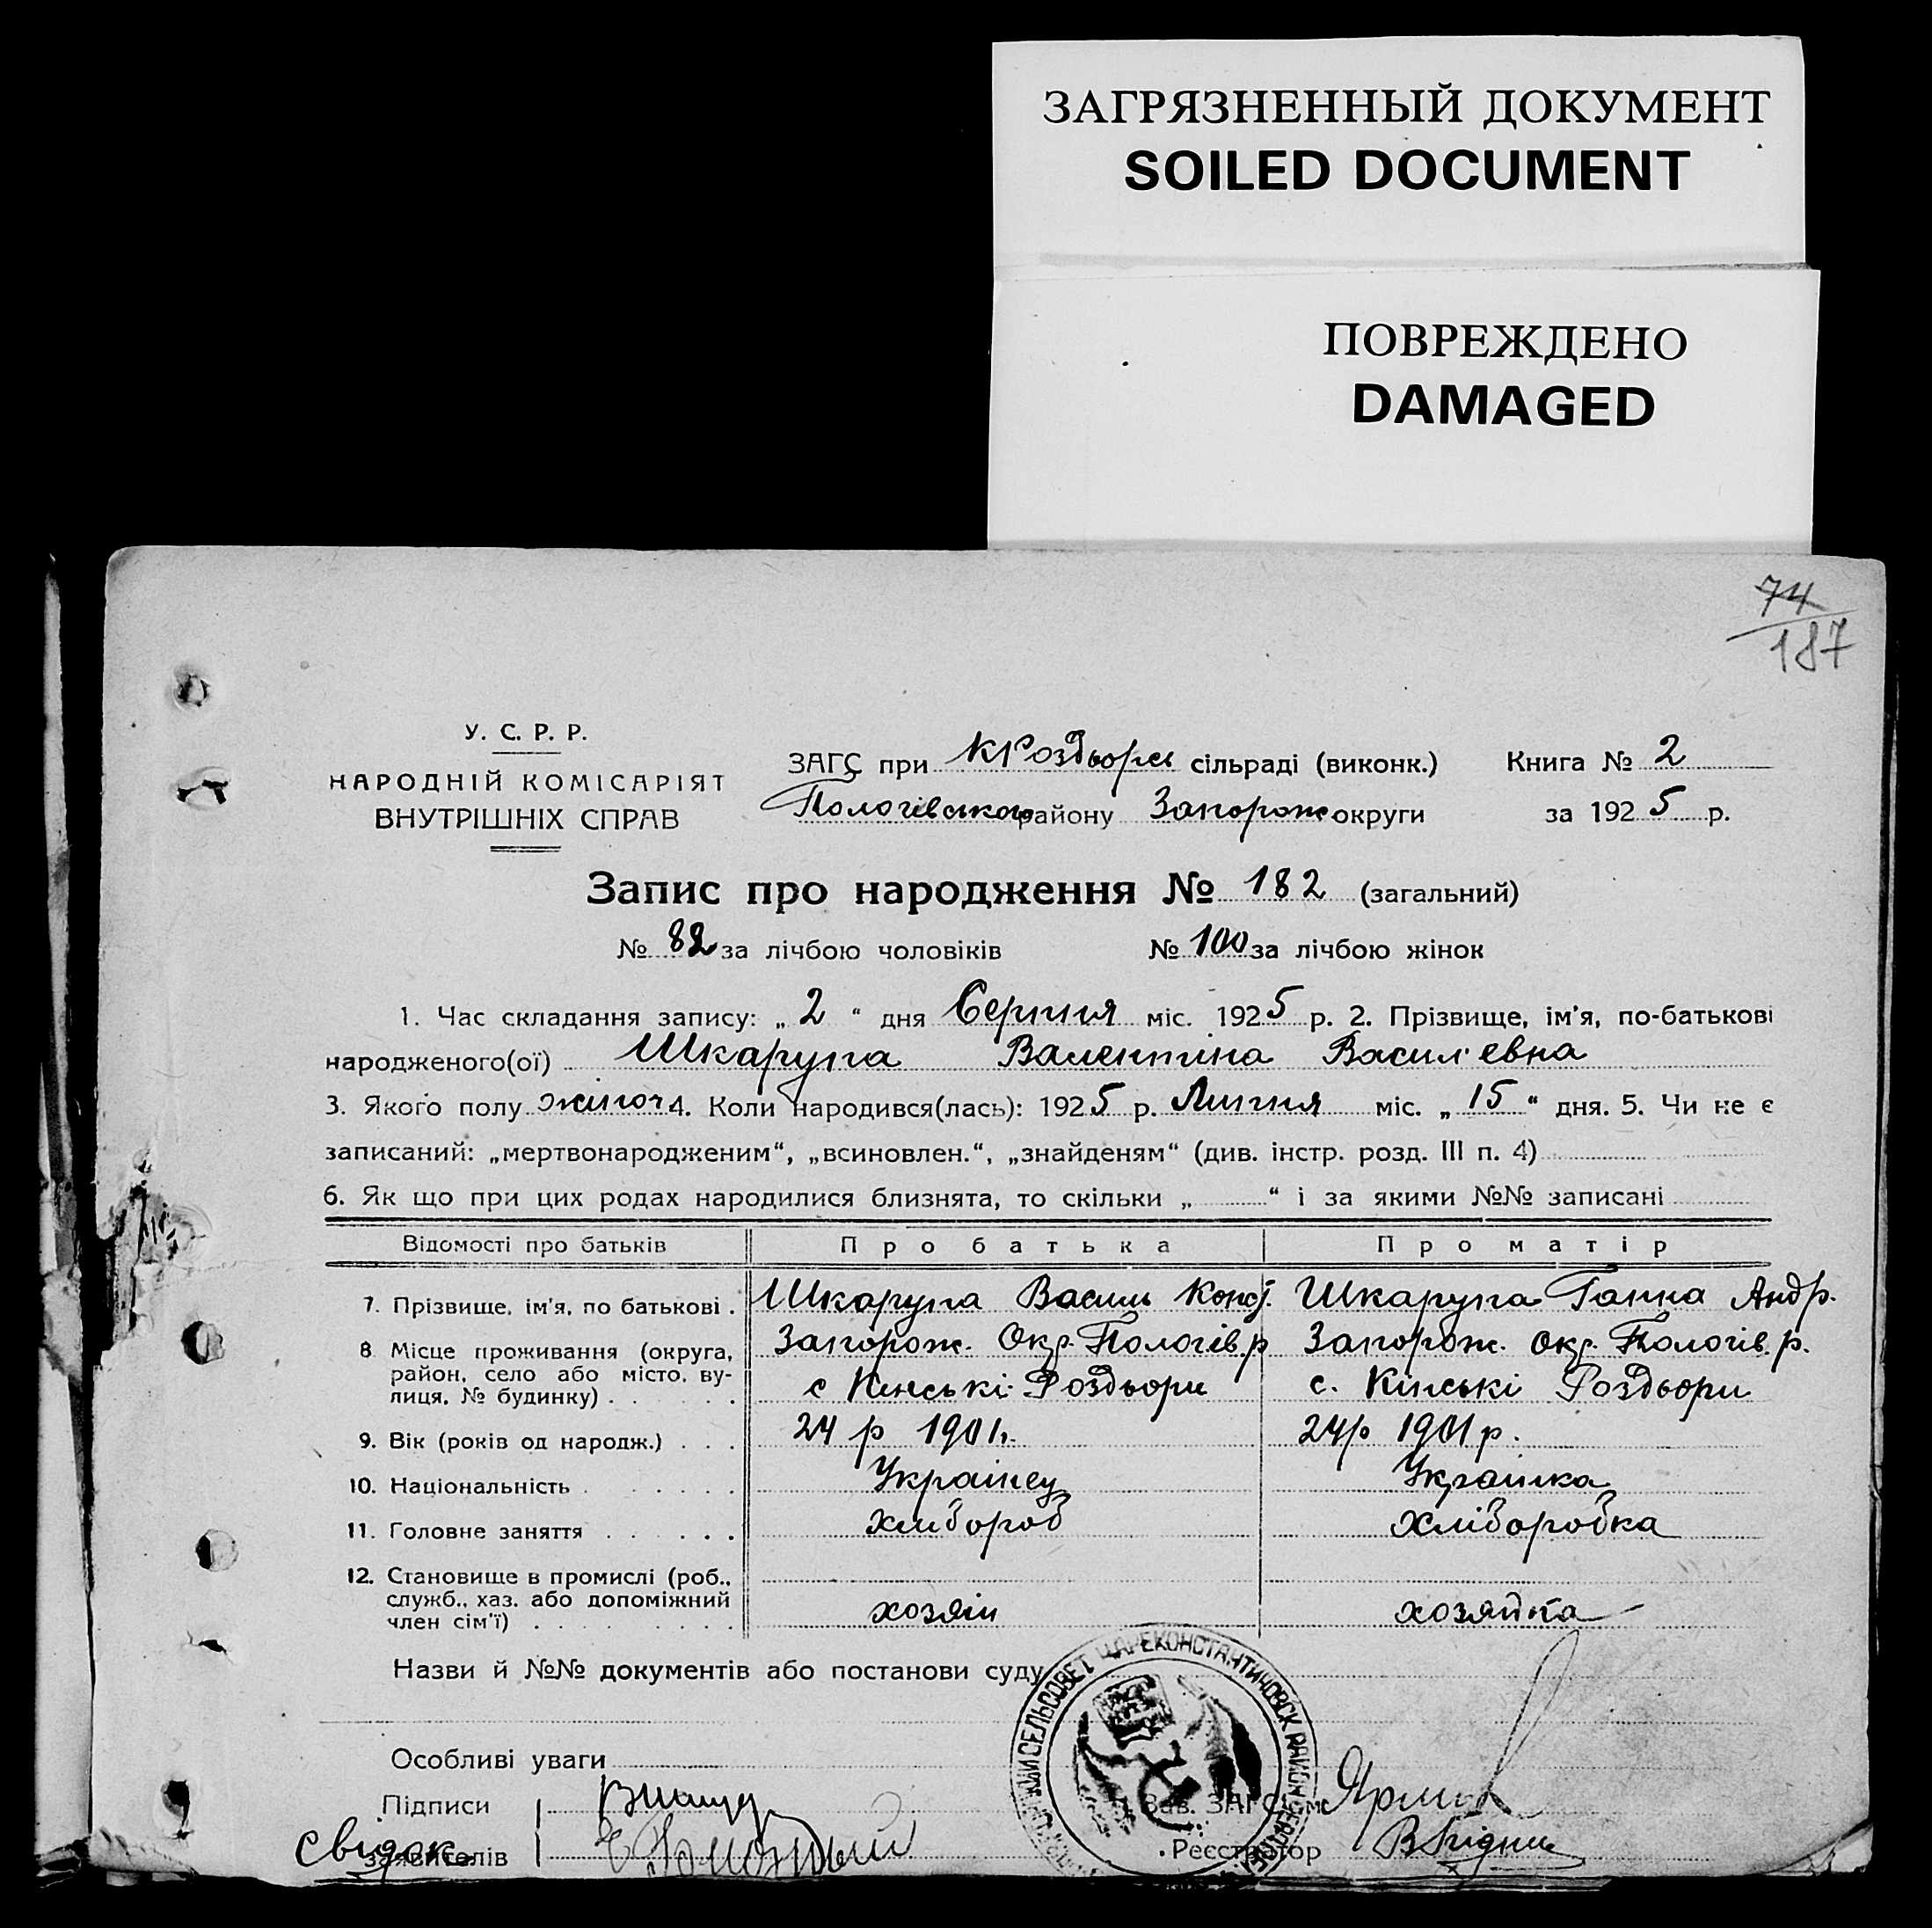 ЗАГРЯЗНЕННЫЙ ДОКУМЕНТ
SOILED DOCUMENT
ПОВРЕЖДЕНО
DAMAGED
74
187
У. С. Р. Р.
НАРОДНІЙ КОМІСАРІЯТ
ВНУТРІШНІХ СПРАВ
ЗАГС при КРоздворсь сільраді (виконк.) Книга № 2
Пологівського району Запорож. округи за 1925 р.
Запис про народження № 182 (загальний)
№ 82 за лічбою чоловіків № 100 за лічбою жінок
1. Час складання запису: „ 2 “ дня Серпня міс. 1925 р. 2. Прізвище, ім'я, по-батькові
народженого(ої) Шкарупа Валентіна Васил'евна
3. Якого полу жіноч 4. Коли народився(лась): 1925 р. Липня міс. „ 15 “ дня. 5. Чи не є
записаний: „мертвонародженим“, „всиновлен.“, „знайденям“ (див. інстр. розд. III п. 4)
6. Як що при цих родах народилися близнята, то скільки „ “ і за якими №№ записані
Відомості про батьків Про батька Про матір
7. Прізвище, ім'я, по батькові . Шкарупа Василь Конст. Шкарупа Ганна Андр.
8. Місце проживання (округа, Запорож. Окр. Пологів. р Запорож. окр. Пологів. р.
район, село або місто, ву-
лиця, № будинку) с Кінські Роздьори с. Кінські Роздьори
9. Вік (років од народж.) 24 р 1901 24 р 1901 р.
10. Національність Українец Українка
11. Головне заняття хлібороб хліборобка
12. Становище в промислі (роб.,
служб., хаз. або допоміжний
член сім'ї) хозяін хозяйка
Назви й №№ документів або постанови суду
СЕЛЬСОВЕТ ЦАРЕКОНСТАНТИНОВСК РАЙОН
Особливі уваги
Підписи
Зав. ЗАГС'ом
свідок
заявителів
Реєстратор